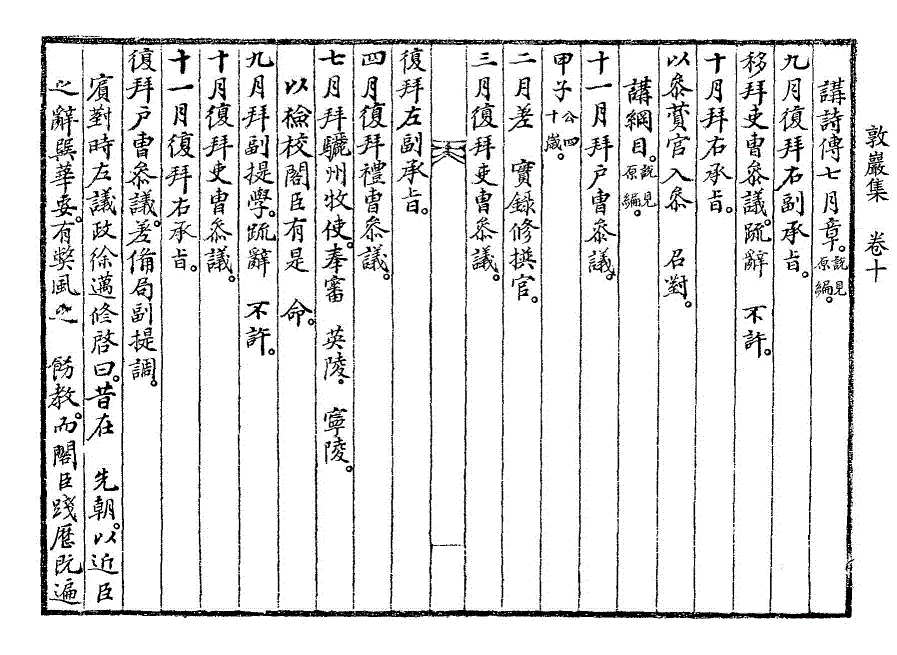 敦巖集　卷十
講詩傳七月章。說見原編。
九月復拜右副承旨。
移拜吏曹參議。疏辭　不許。
十月拜右承旨。
以參贊官入參　召對。
講綱目。說見原編。
十一月拜戶曹參議。
甲子公四十歲。
二月差　實錄修撰官。
三月復拜吏曹參議。
復拜左副承旨。
四月復拜禮曹參議。
七月拜驪州牧使。奉審　英陵。寧陵。
以檢校閣臣有是　命。
九月拜副提學。疏辭　不許。
十月復拜吏曹參議。
十一月復拜右承旨。
復拜戶曹參議。差備局副提調。
賓對時左議政徐邁修啓曰。昔在　先朝。以近臣
之辭巽華要。有獘風之　飭敎。而閣臣踐歷旣遍